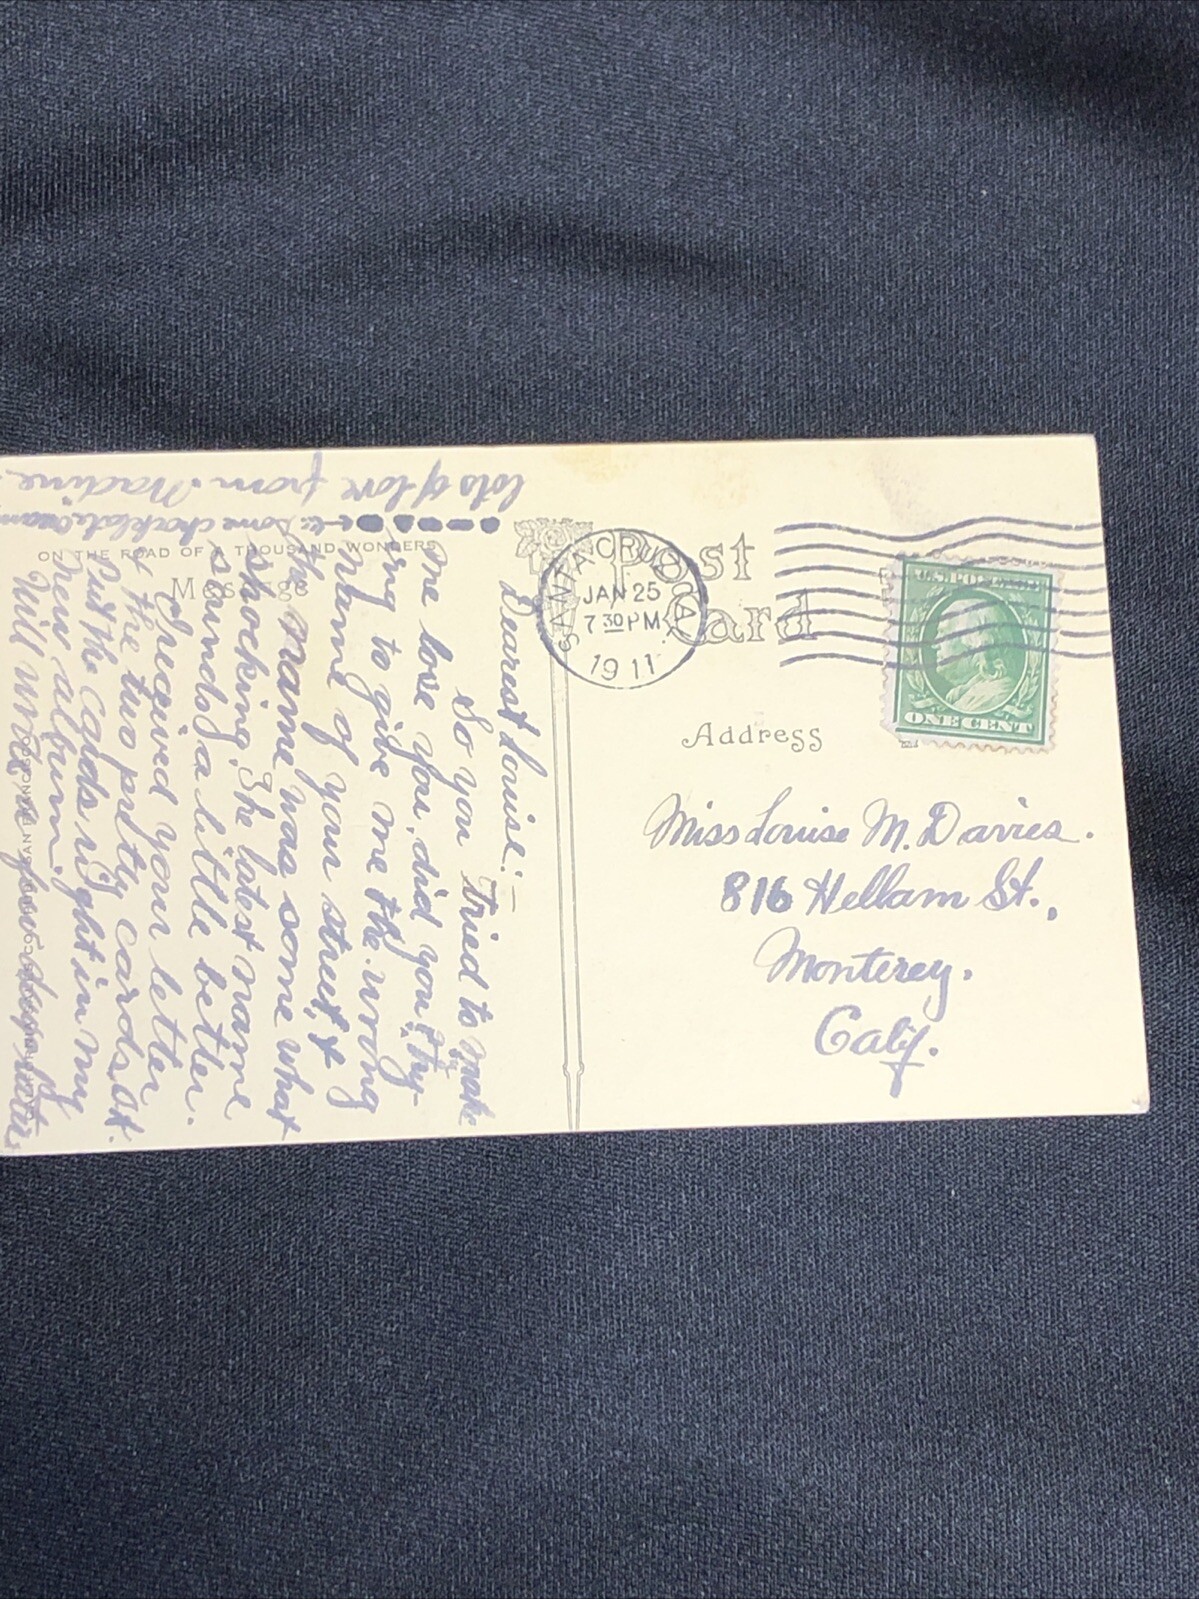 Post
Card
SANTA CRUZ CAL.
JAN 25
7 30 PM
1911
U.S. POSTAGE
ONE CENT
Address
Miss Louise M. Davies.
816 Hellam St.,
Monterey.
Calif.
ON THE ROAD OF A THOUSAND WONDERS
Message
Dearest Louise:—
So you tried to make
me love you, did you? Try-
ing to give me the wrong
name of your street, &
the name was some what
shocking. The latest name
sounds a little better.
Received your letter
& the two pretty cards &
put the cards right in my
new album.
Will write
some chocklate cream
lots of love from. Nadine.